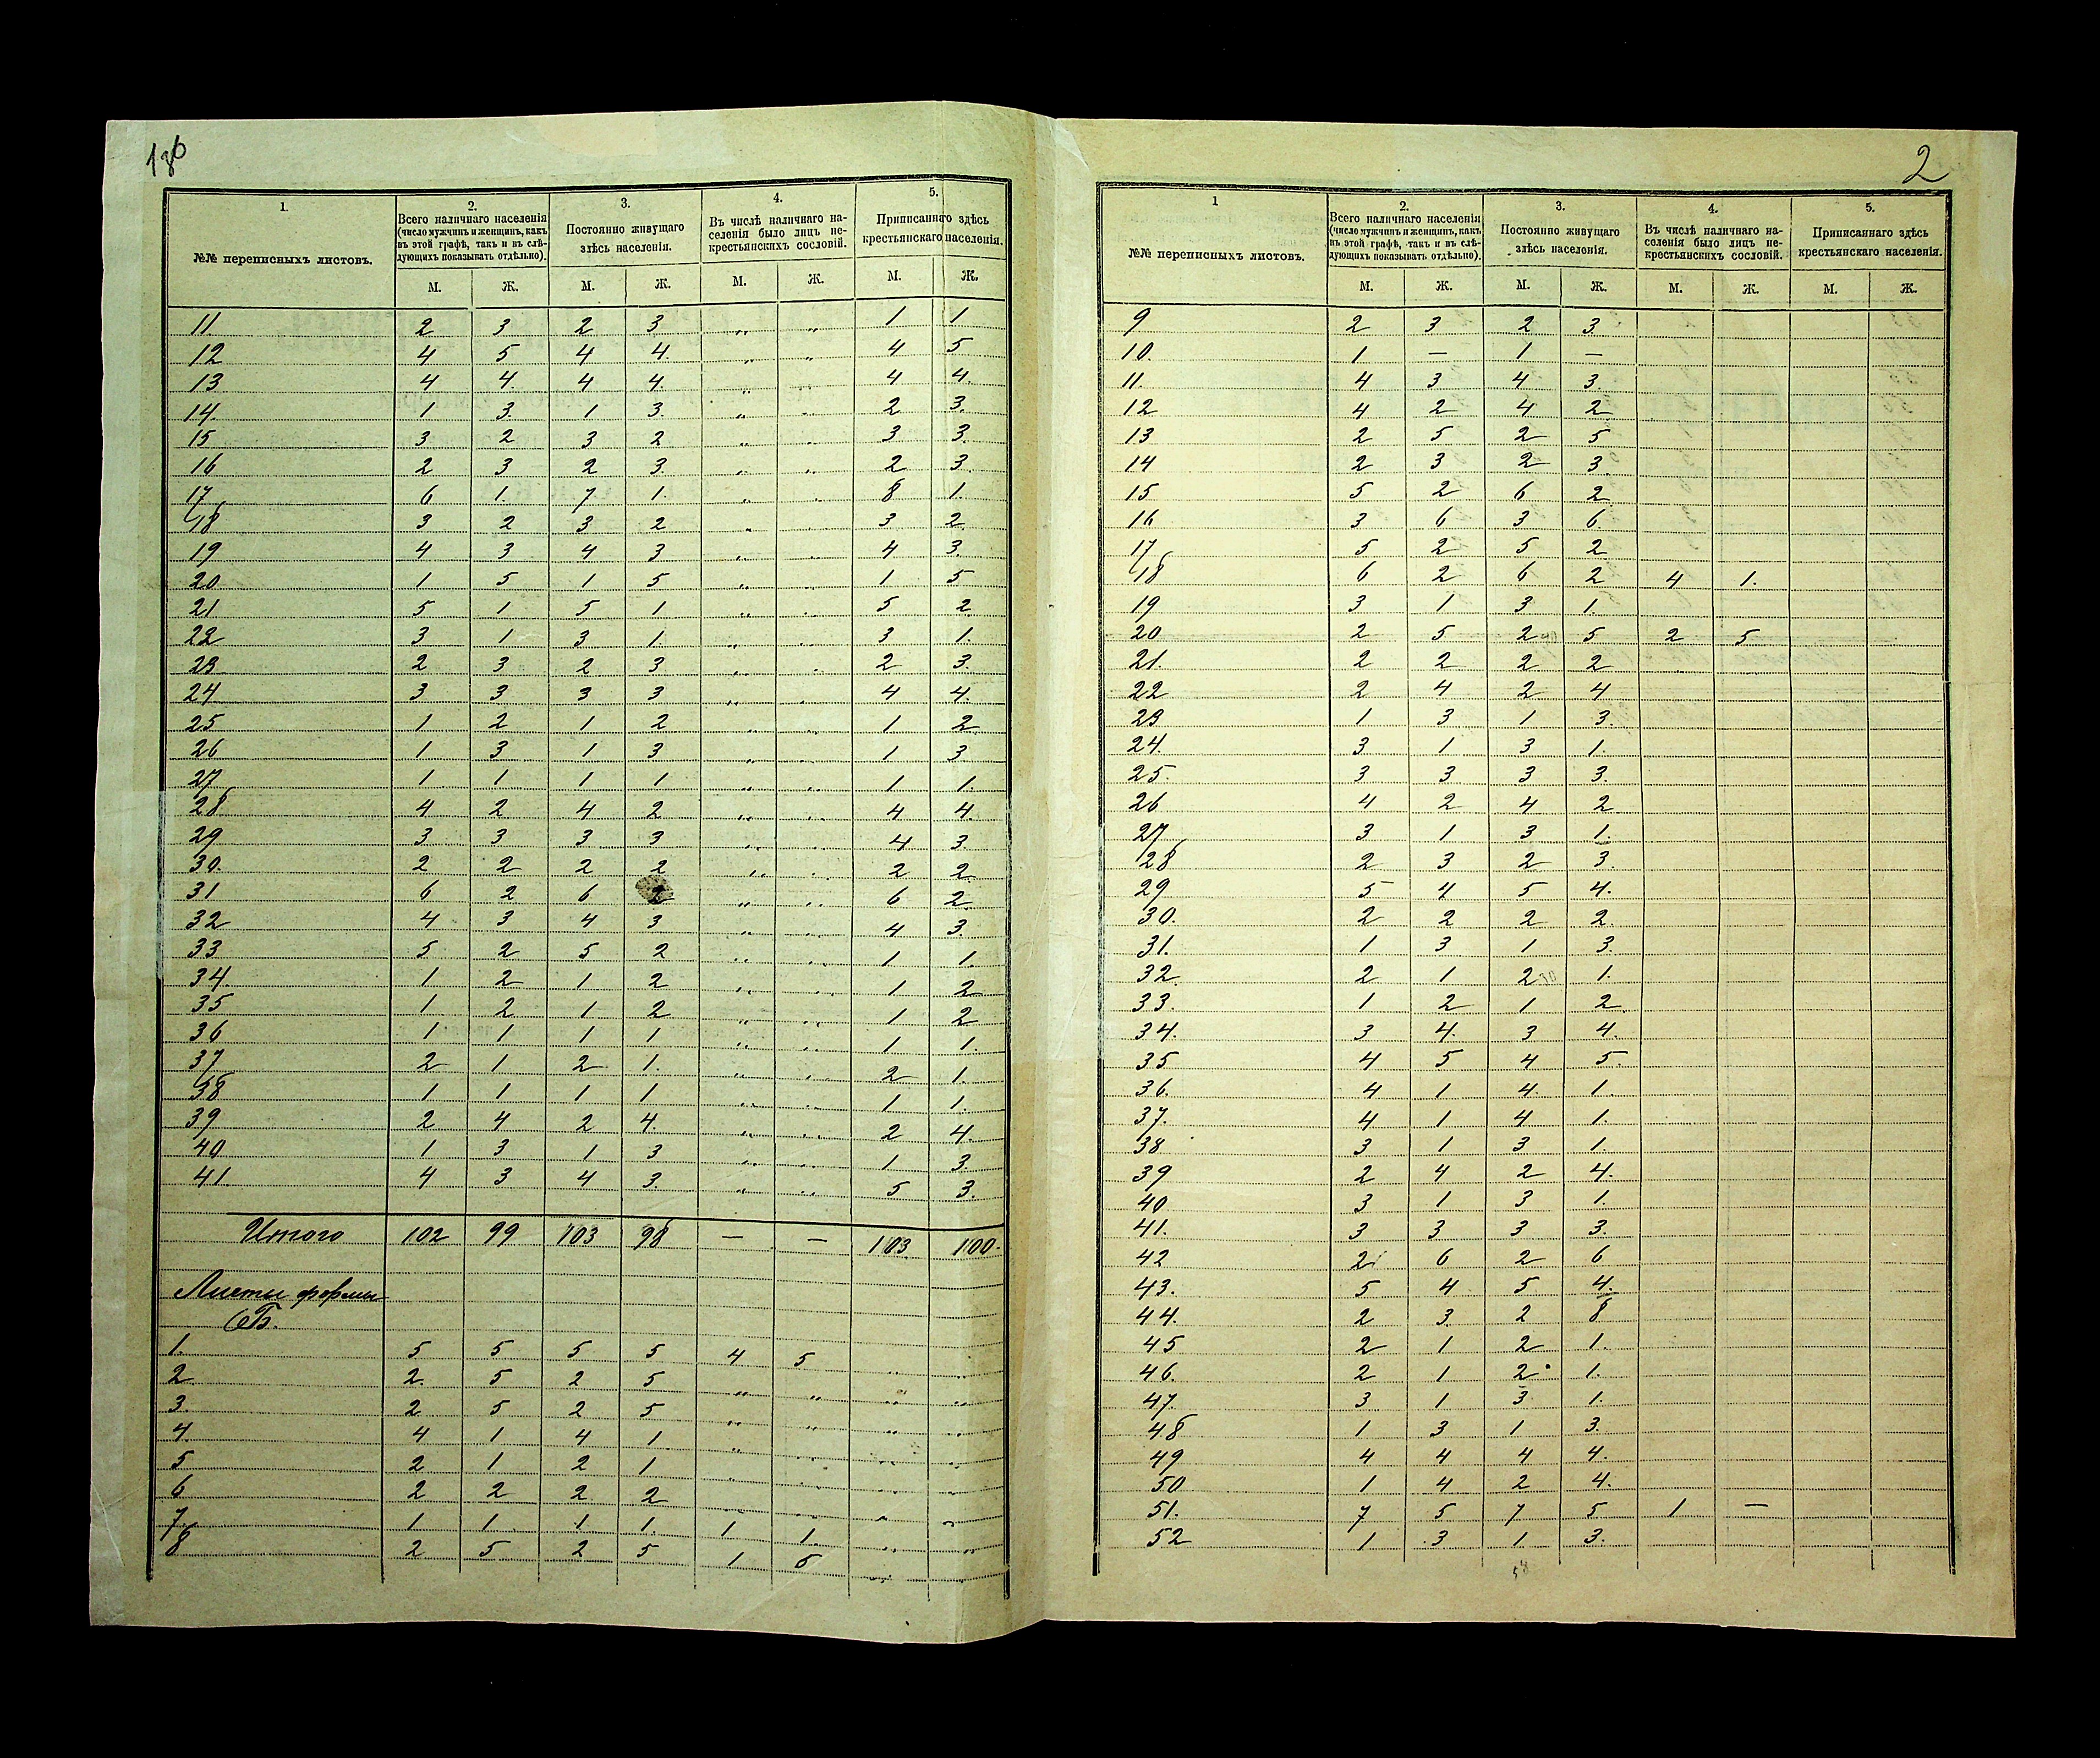 136
1.
2.
3.
4.
5.
№№ переписныхъ листовъ.
Всего наличнаго населенія (число мужчинъ и женщинъ, какъ въ этой графѣ, такъ и въ слѣдующихъ показывать отдѣльно).
Постоянно живущаго здѣсь населенія.
Въ числѣ наличнаго населенія было лицъ некрестьянскихъ сословій.
Приписаннаго здѣсь крестьянскаго населенія.
М. Ж. М. Ж. М. Ж. М. Ж.
11 2 3 2 3 „ „ 1 1
12 4 5 4 4 „ „ 4 5
13 4 4 4 4 „ „ 4 4.
14. 1 3. 1 3. „ „ 2 3.
15 3 2 3 2 „ „ 3 3.
16 2 3 2 3. „ „ 2 3.
17 6 1. 7 1. „ „ 8 1.
18 3 2 3 2 „ „ 3 2.
19 4 3 4 3 „ „ 4 3.
20 1 5 1 5 „ „ 1 5
21 5 1 5 1 „ „ 5 2
22 3 1 3 1. „ „ 3 1.
23 2 3 2 3 „ „ 2 3.
24 3 3 3 3 „ „ 4 4.
25 1 2 1 2 „ „ 1 2
26 1 3 1 3 „ „ 1 3
27 1 1 1 1 „ „ 1 1.
28 4 2 4 2 „ „ 4 4.
29 3 3 3 3 „ „ 4 3.
30. 2 2 2 2 „ „ 2 2
31 6 2 6 2 „ „ 6 2.
32 4 3 4 3 „ „ 4 3.
33 5 2 5 2 „ „ 1 1.
34. 1 2 1 2 „ „ 1 2
35 1 2 1 2 „ „ 1 2
36 1 1 1 1 „ „ 1 1.
37 2 1 2 1. „ „ 2 1.
38 1 1 1 1 „ „ 1 1.
39 2 4 2 4. „ „ 2 4.
40 1 3 1 3 „ „ 1 3.
41. 4 3 4 3. „ „ 5 3.
Итого 102 99 103 98 — — 103 100.
Листы формы
Б.
1. 5 5 5 5 4 5 „ „
2 2. 5 2 5 „ „ „ „
3. 2 5 2 5 „ „ „ „
4. 4 1 4 1 „ „ „ „
5 2 1 2 1 „ „ „ „
6 2 2 2 2 „ „ „ „
7. 1 1. 1 1. 1 1. „ „
8 2 5 2 5 1 5 „ „
2
1
2.
3.
4.
5.
№№ переписныхъ листовъ.
Всего наличнаго населенія (число мужчинъ и женщинъ, какъ въ этой графѣ, такъ и въ слѣдующихъ показывать отдѣльно).
Постоянно живущаго здѣсь населенія.
Въ числѣ наличнаго населенія было лицъ некрестьянскихъ сословій.
Приписаннаго здѣсь крестьянскаго населенія.
М. Ж. М. Ж. М. Ж. М. Ж.
9 2 3 2 3.
10. 1 — 1 —
11. 4 3 4 3.
12 4 2 4 2
13 2 5 2 5
14 2 3 2 3.
15 5 2 6 2
16 3 6 3 6.
17 5 2 5 2
18 6 2 6 2 4 1.
19 3 1 3 1.
20 2 5 2 5 2 5
21. 2 2 2 2
22 2 4 2 4
23 1 3 1 3.
24. 3 1 3 1.
25. 3 3 3 3.
26 4 2 4 2
27 3 1 3 1.
28 2 3 2 3.
29 5 4 5 4.
30. 2 2 2 2.
31. 1 3 1 3.
32. 2 1 2 1.
33. 1 2 1 2.
34. 3 4. 3 4.
35 4 5 4 5.
36. 4 1 4. 1.
37. 4 1 4 1.
38 3 1 3 1.
39 2 4 2 4.
40 3 1 3 1.
41. 3 3 3 3.
42 2 6 2 6
43. 5 4 5 4.
44. 2 3. 2 8
45 2 1 2 1.
46. 2 1 2 1.
47. 3 1 3 1.
48 1 3 1 3.
49 4 4 4 4.
50 1 4 2 4.
51. 7 5 7 5 1 —
52 1 3 1 3.